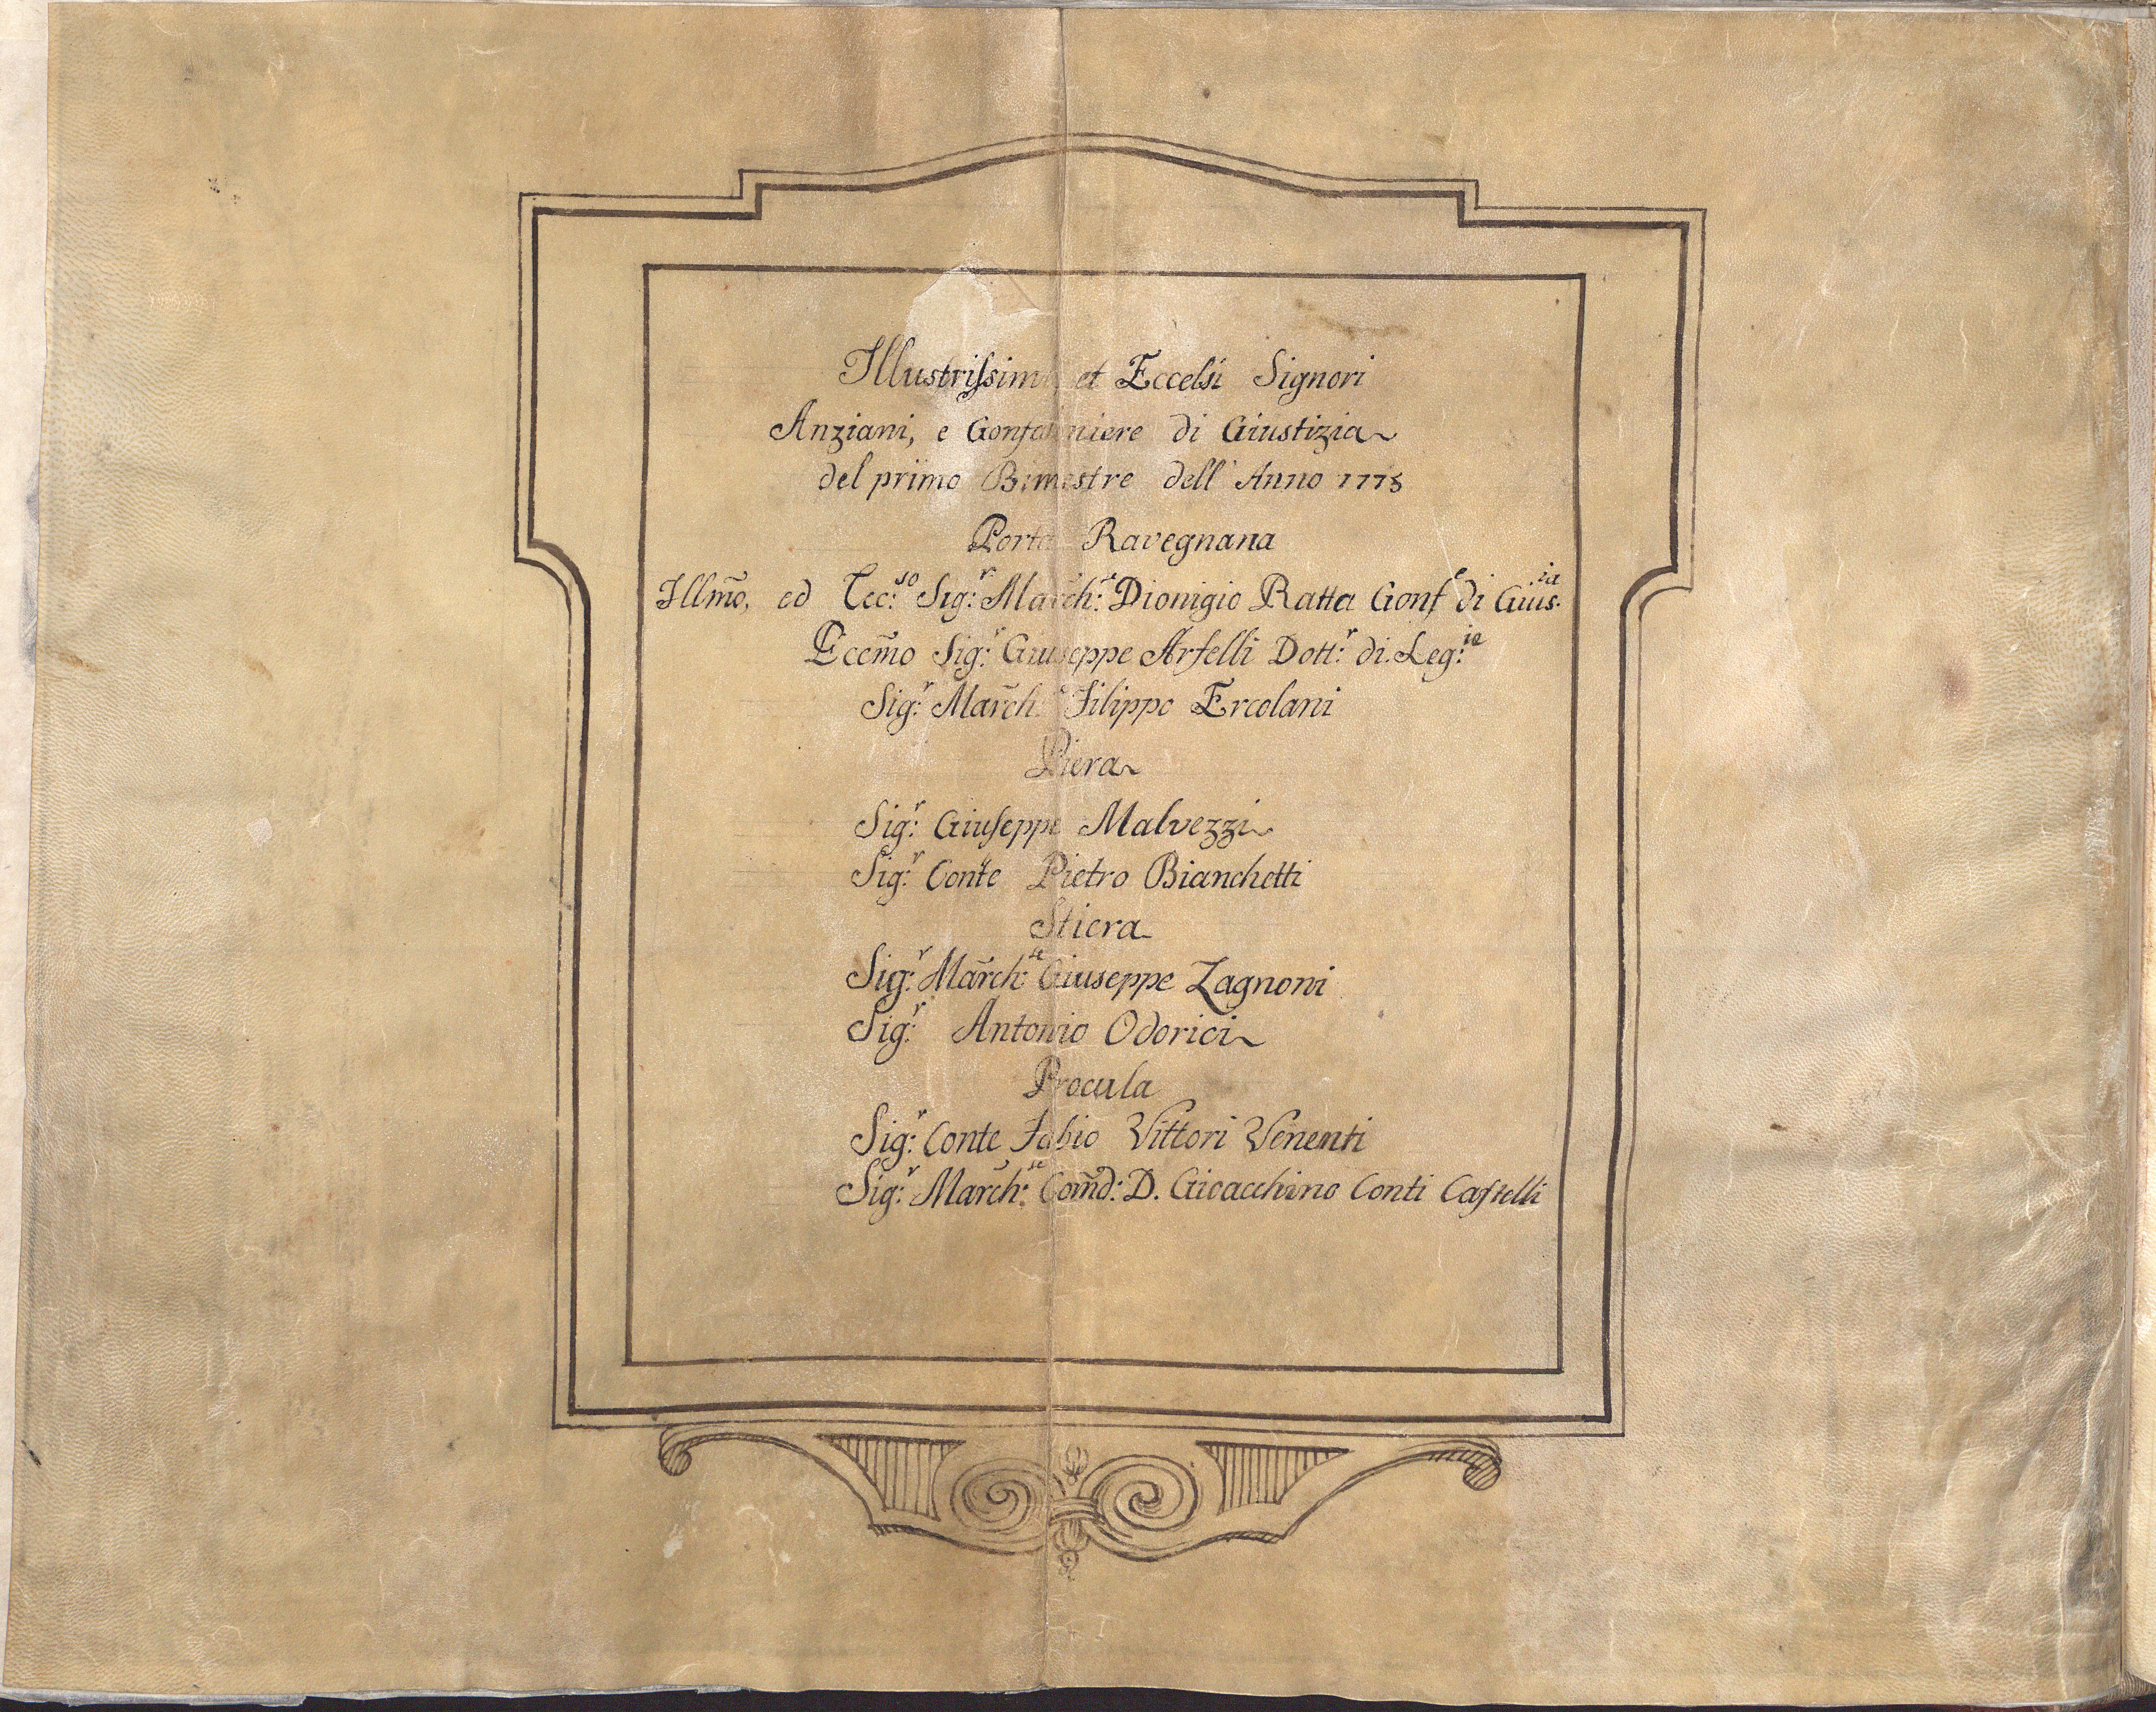 Illustrissimi et Eccelsi Signori
Anziani, e Gonfaloniere di Giustizia
del primo Bimestre dell' Anno 1778
Porta Ravegnana
Illm̃o, ed Ecc:so Sig:r March:e Dionigio Ratta Gonf.e di Gius.ia
Eccm̃o Sig:r Giuseppe Arfelli Dott:r di Leg:ie
Sig:r March:e Filippo Ercolani
Piera
Sig:r Giuseppe Malvezzi
Sig:r Conte Pietro Bianchetti
Stiera
Sig:r March:se Giuseppe Zagnoni
Sig:r Antonio Odorici
Procula
Sig:r Conte Fabio Vittori Venenti
Sig:r March:se Com̃d: D. Gioacchino Conti Castelli